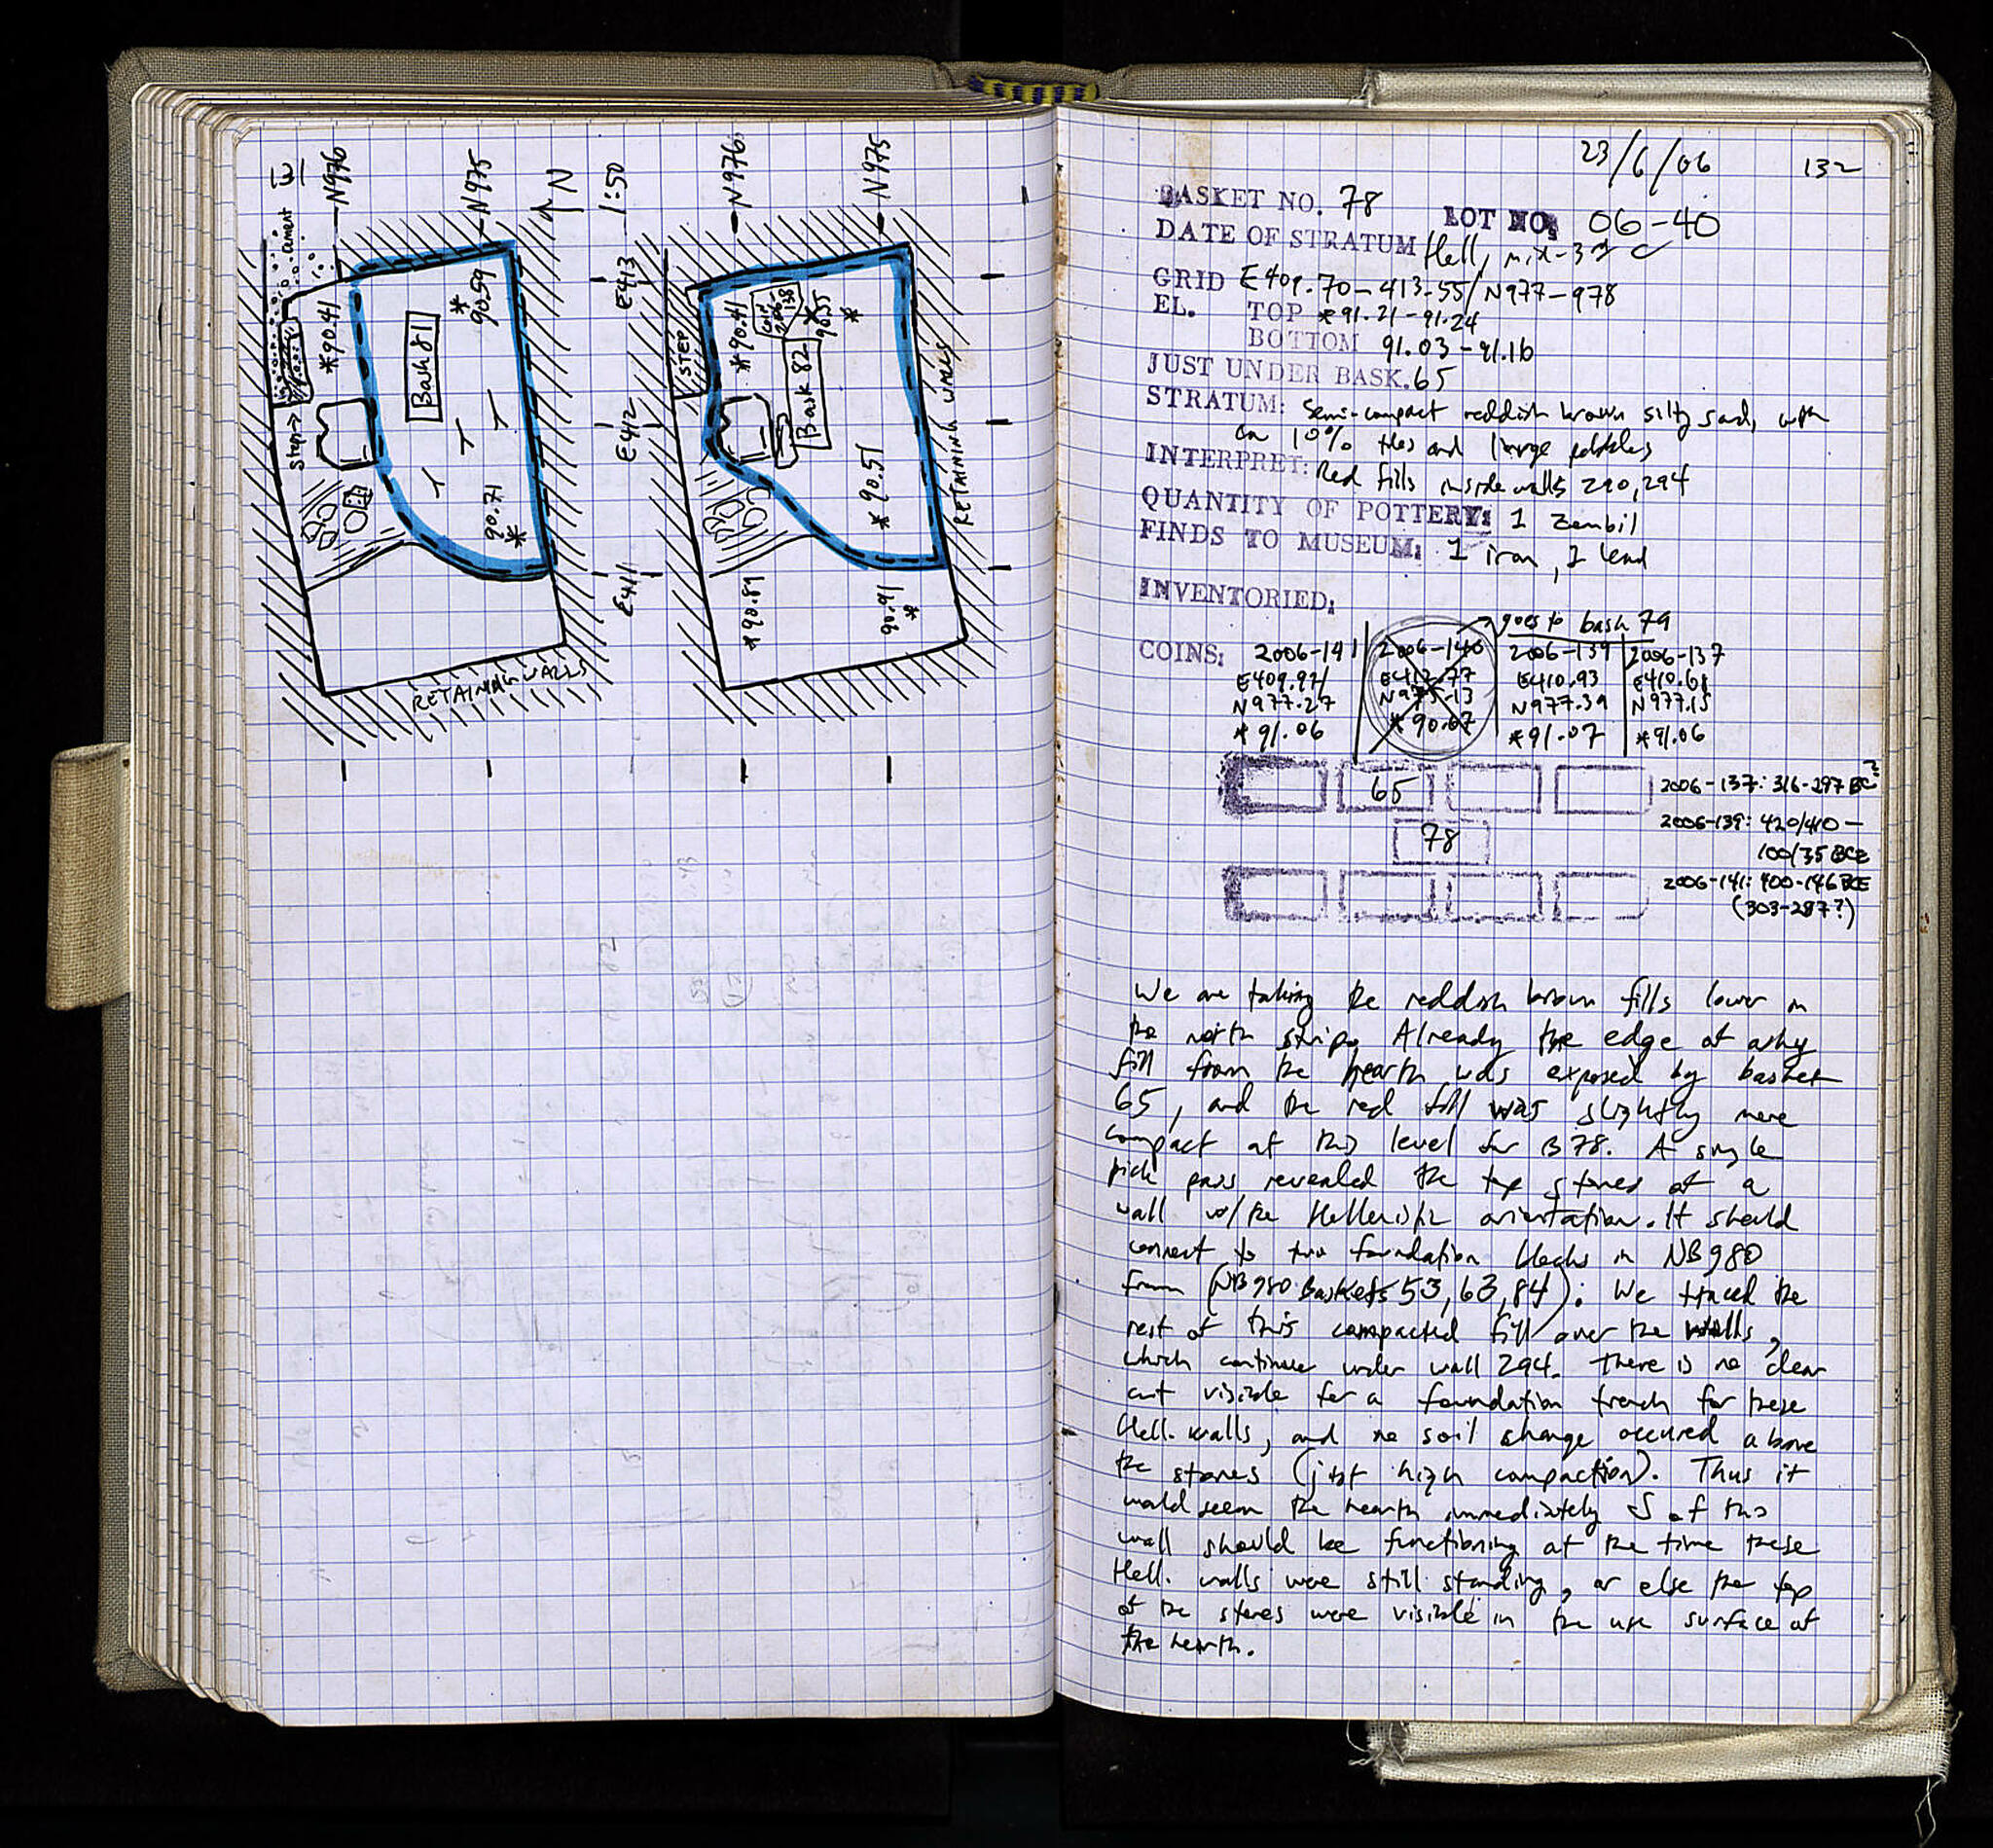 N976
N975
N
1:50
N976
N975
cement
*90.41
Bask 81
*
90.59
Step→
90.71
*
RETAINING WALLS
E413
E412
E411
STEP
*90.41
Coin
2006-
138
*
90.55
*
Bask 82
*90.51
RETAINING WALLS
*90.89
90.91
*
23/6/06
132
BASKET NO. 78
LOT NO. 06-40
DATE OF STRATUM Hell, mix-3rd C
GRID E409.70-413.55/N977-978
EL. TOP *91.21-91.24
BOTTOM 91.03-91.16
JUST UNDER BASK. 65
STRATUM: Semi-compact reddish brown silty sand, with
ca 10% tiles and large pebbles
INTERPRET: Red fills inside walls 290, 294
QUANTITY OF POTTERY: 1 Zembil
FINDS TO MUSEUM: 1 iron, 1 lead
INVENTORIED:
goes to bask 79
COINS: 2006-141 2006-140 2006-139 2006-137
E409.97 E412.77 E410.93 E410.68
N977.27 N975.13 N977.39 N977.15
*91.06 *90.67 *91.07 *91.06
65
2006-137: 316-297 BC?
78
2006-139: 420/410-
100/35 BCE
2006-141: 400-146 BCE
(303-287?)
We are taking the reddish brown fills lower in
the north strip. Already the edge of ashy
fill from the hearth was exposed by basket
65, and the red fill was slightly more
compact at this level for B78. A single
pick pass revealed the top stones of a
wall w/the Hellenistic orientation. It should
connect to two foundation blocks in NB980
from (NB980 Baskets 53, 63, 84). We traced the
rest of this compacted fill over the walls,
which continues under wall 294. There is no clear
cut visible for a foundation trench for these
Hell. walls, and no soil change occured above
the stones (just high compaction). Thus it
would seem the hearth immediately S of this
wall should be functioning at the time these
Hell. walls were still standing, or else the top
of the stones were visible in the use surface of
the hearth.